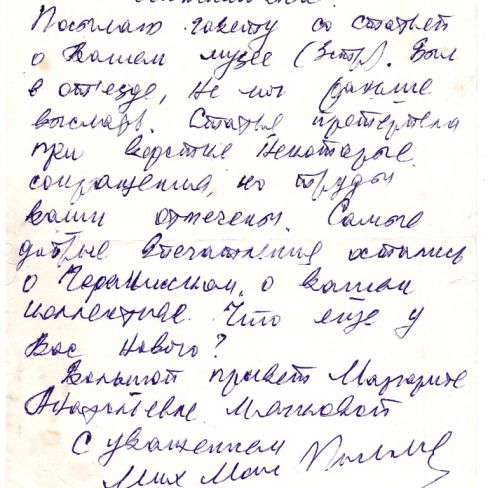 Посылаю газету со статьёй
о Вашем музее (3стр). Был
в от'езде, не мог раньше
выслать. Статья претерпела
при верстке некоторые
сокращения, но труды
ваши отмечены. Самые
добрые впечатления остались
о вашем
коллективе. Что еще у
Вас нового?
Большой привет Маргарите
Анатольевне
С уважением